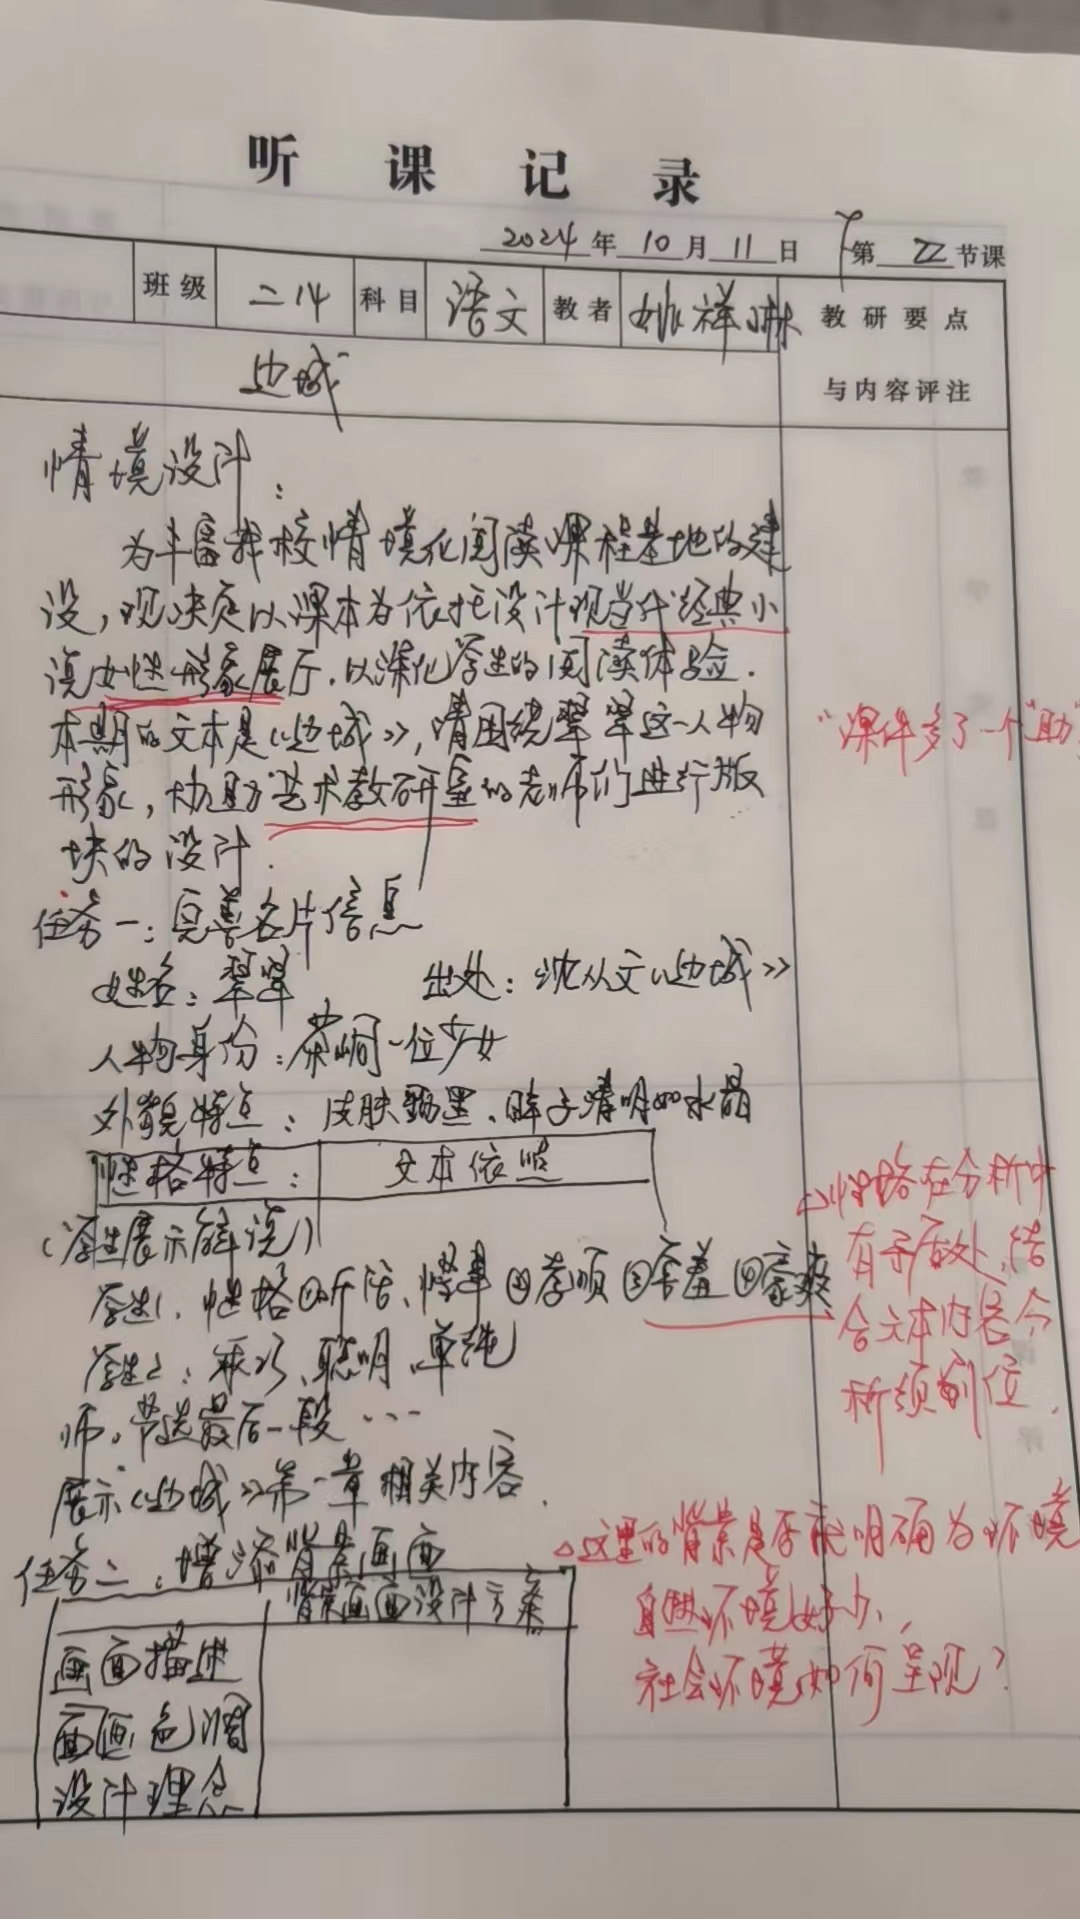 听课记录
2024年10月11日 第 节课
班级 二14 科目 语文 教者 姚祥 教研要点
与内容评注
边城
情境设计：
为丰富我校情境化阅读课程基地的建
设，现决定以课本为依托设计现当代经典小
说女性形象展厅，以深化学生的阅读体验．
本期的文本是《边城》，请围绕翠翠这一人物
"课件多了一个"助"
形象，协助艺术教研室的老师们进行版
块的设计．
任务一：完善名片信息
姓名：翠翠 出处：沈从文《边城》
人物身份：茶峒一位少女
外貌特点：皮肤黝黑、眸子清明如水晶
性格特点： 文本依照
（学生展示解说）
学生1．性格①听话、懂事②孝顺③害羞④豪爽
学生2：乖巧、聪明、单纯
师．节选最后一段…
展示《边城》第一章相关内容．
△性格在分析中
有矛盾处，结
合文本内容分
析须到位．
任务二：增添背景画面
背景画面设计方案
画面描述
画面色调
设计理念
△这里的背景是否就明确为环境
自然环境好办，
社会环境如何呈现？